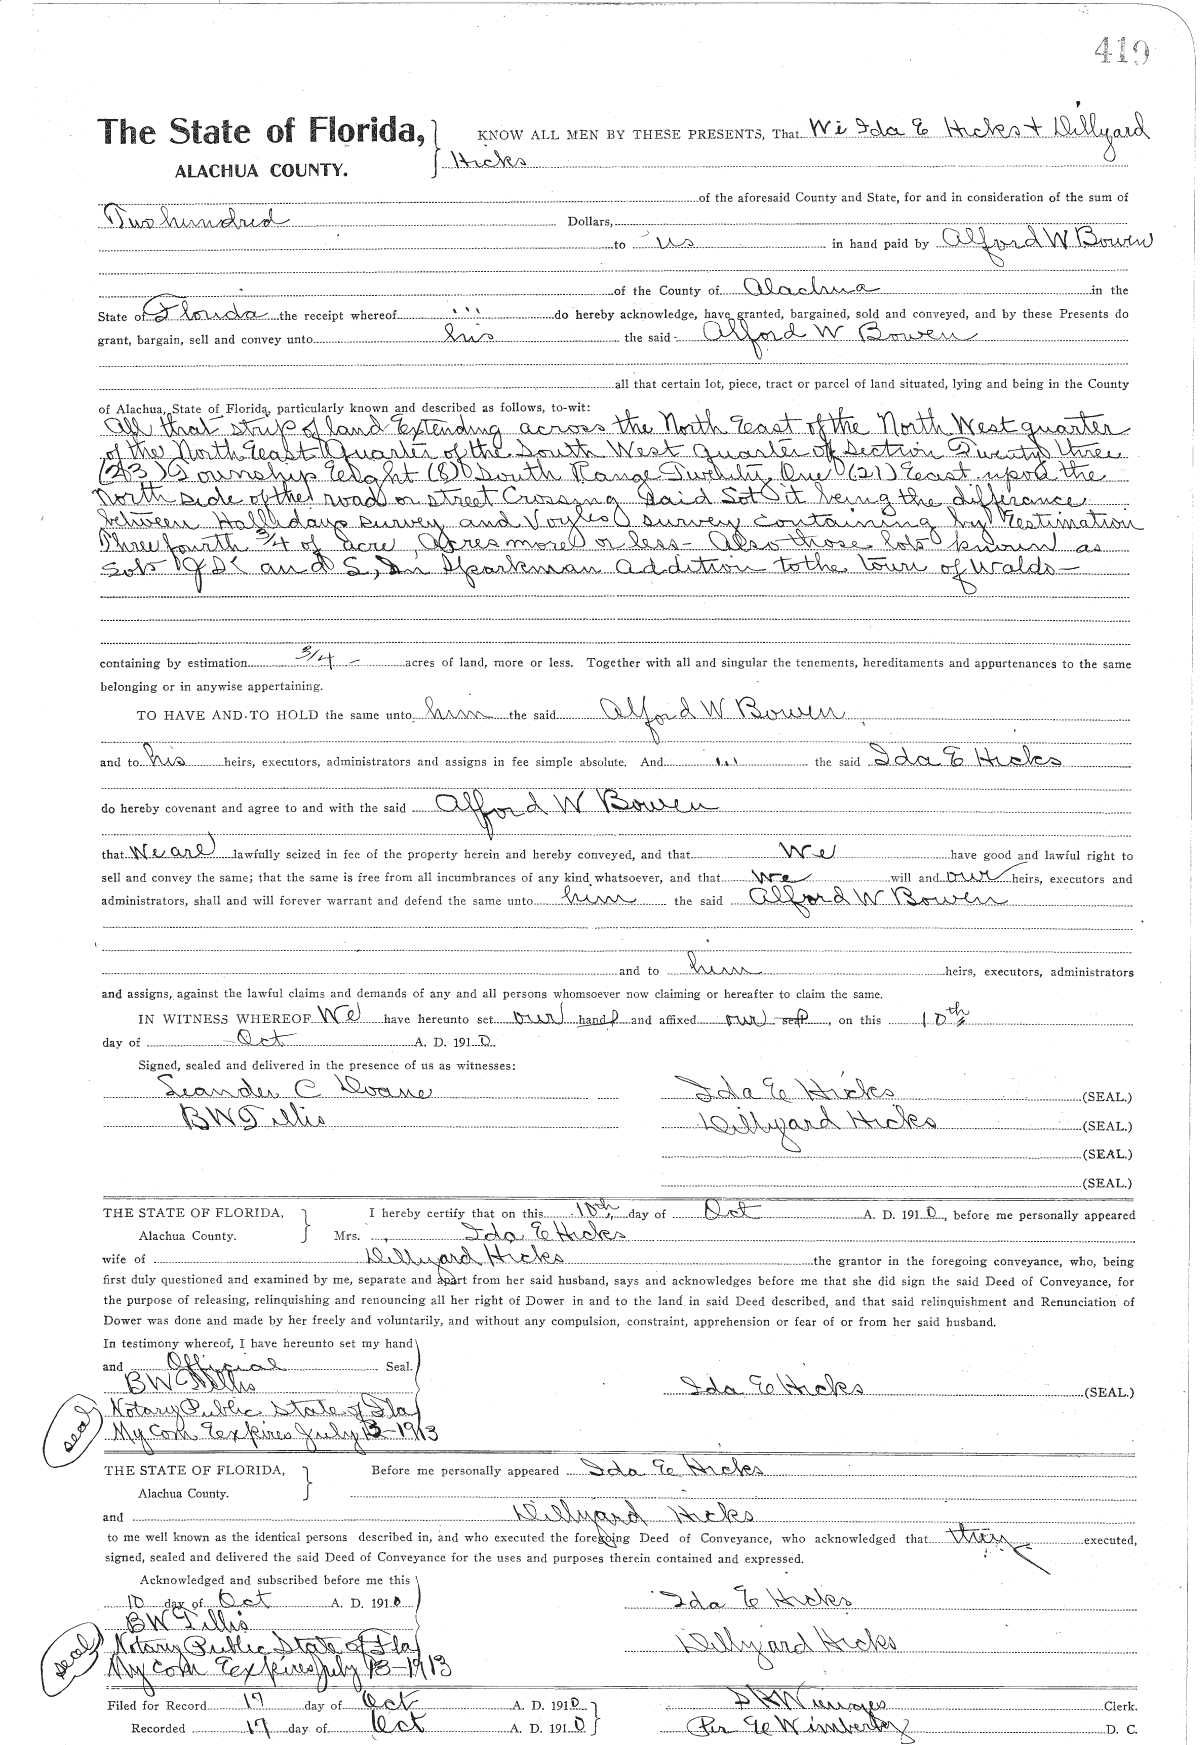 419
The State of Florida,
ALACHUA COUNTY.
KNOW ALL MEN BY THESE PRESENTS, That We Ida E Hicks + Dillyard
Hicks
of the aforesaid County and State, for and in consideration of the sum of
Two hundred Dollars,
to us in hand paid by Alford W Bowen
of the County of Alachua in the
State of Florida the receipt whereof ... do hereby acknowledge, have granted, bargained, sold and conveyed, and by these Presents do
grant, bargain, sell and convey unto his the said Alford W Bowen
all that certain lot, piece, tract or parcel of land situated, lying and being in the County
of Alachua, State of Florida, particularly known and described as follows, to-wit:
All that strip of land Extending across the North East of the North West quarter
of the North East Quarter of the South West quarter of Section Twenty three
(23) Township Eight (8) South Range Twenty One (21) East upon the
North side of the road or street Crossing Said Sot it being the difference
between Hallidays survey and Voyles survey containing by Estimation
Three fourth 3/4 of acre, Acres more or less - Also those lots known as
and S, In Sparkman Addition to the Town of Waldo -
containing by estimation 3/4 - acres of land, more or less. Together with all and singular the tenements, hereditaments and appurtenances to the same
belonging or in anywise appertaining.
TO HAVE AND TO HOLD the same unto him the said Alford W Bowen
and to his heirs, executors, administrators and assigns in fee simple absolute. And ... the said Ida E Hicks
do hereby covenant and agree to and with the said Alford W Bowen
that We are lawfully seized in fee of the property herein and hereby conveyed, and that We have good and lawful right to
sell and convey the same; that the same is free from all incumbrances of any kind whatsoever, and that we will and our heirs, executors and
administrators, shall and will forever warrant and defend the same unto him the said Alford W Bowen
and to him heirs, executors, administrators
and assigns, against the lawful claims and demands of any and all persons whomsoever now claiming or hereafter to claim the same.
IN WITNESS WHEREOF We have hereunto set our hand and affixed our seal, on this 10th
day of Oct A. D. 1910.
Signed, sealed and delivered in the presence of us as witnesses:
Leander C Doane Ida E Hicks (SEAL.)
BW Tillis Dillyard Hicks (SEAL.)
(SEAL.)
(SEAL.)
THE STATE OF FLORIDA, I hereby certify that on this 10th, day of Oct A. D. 1910, before me personally appeared
Alachua County. Mrs. Ida E Hicks
wife of Dillyard Hicks the grantor in the foregoing conveyance, who, being
first duly questioned and examined by me, separate and apart from her said husband, says and acknowledges before me that she did sign the said Deed of Conveyance, for
the purpose of releasing, relinquishing and renouncing all her right of Dower in and to the land in said Deed described, and that said relinquishment and Renunciation of
Dower was done and made by her freely and voluntarily, and without any compulsion, constraint, apprehension or fear of or from her said husband.
In testimony whereof, I have hereunto set my hand
and Official Seal.
BW Tillis Ida E Hicks (SEAL.)
seal Notary Public State of Fla
My Com Expires July 13-1913
THE STATE OF FLORIDA, Before me personally appeared Ida E Hicks
Alachua County.
and Dillyard Hicks
to me well known as the identical persons described in, and who executed the foregoing Deed of Conveyance, who acknowledged that they executed,
signed, sealed and delivered the said Deed of Conveyance for the uses and purposes therein contained and expressed.
Acknowledged and subscribed before me this
10 day of Oct A. D. 1910 Ida E Hicks
BW Tillis
seal Notary Public State of Fla Dillyard Hicks
My Com Expires July 13-1913
Filed for Record 17 day of Oct A. D. 1910 Clerk.
Recorded 17 day of Oct A. D. 1910 Per E Wimberly D. C.